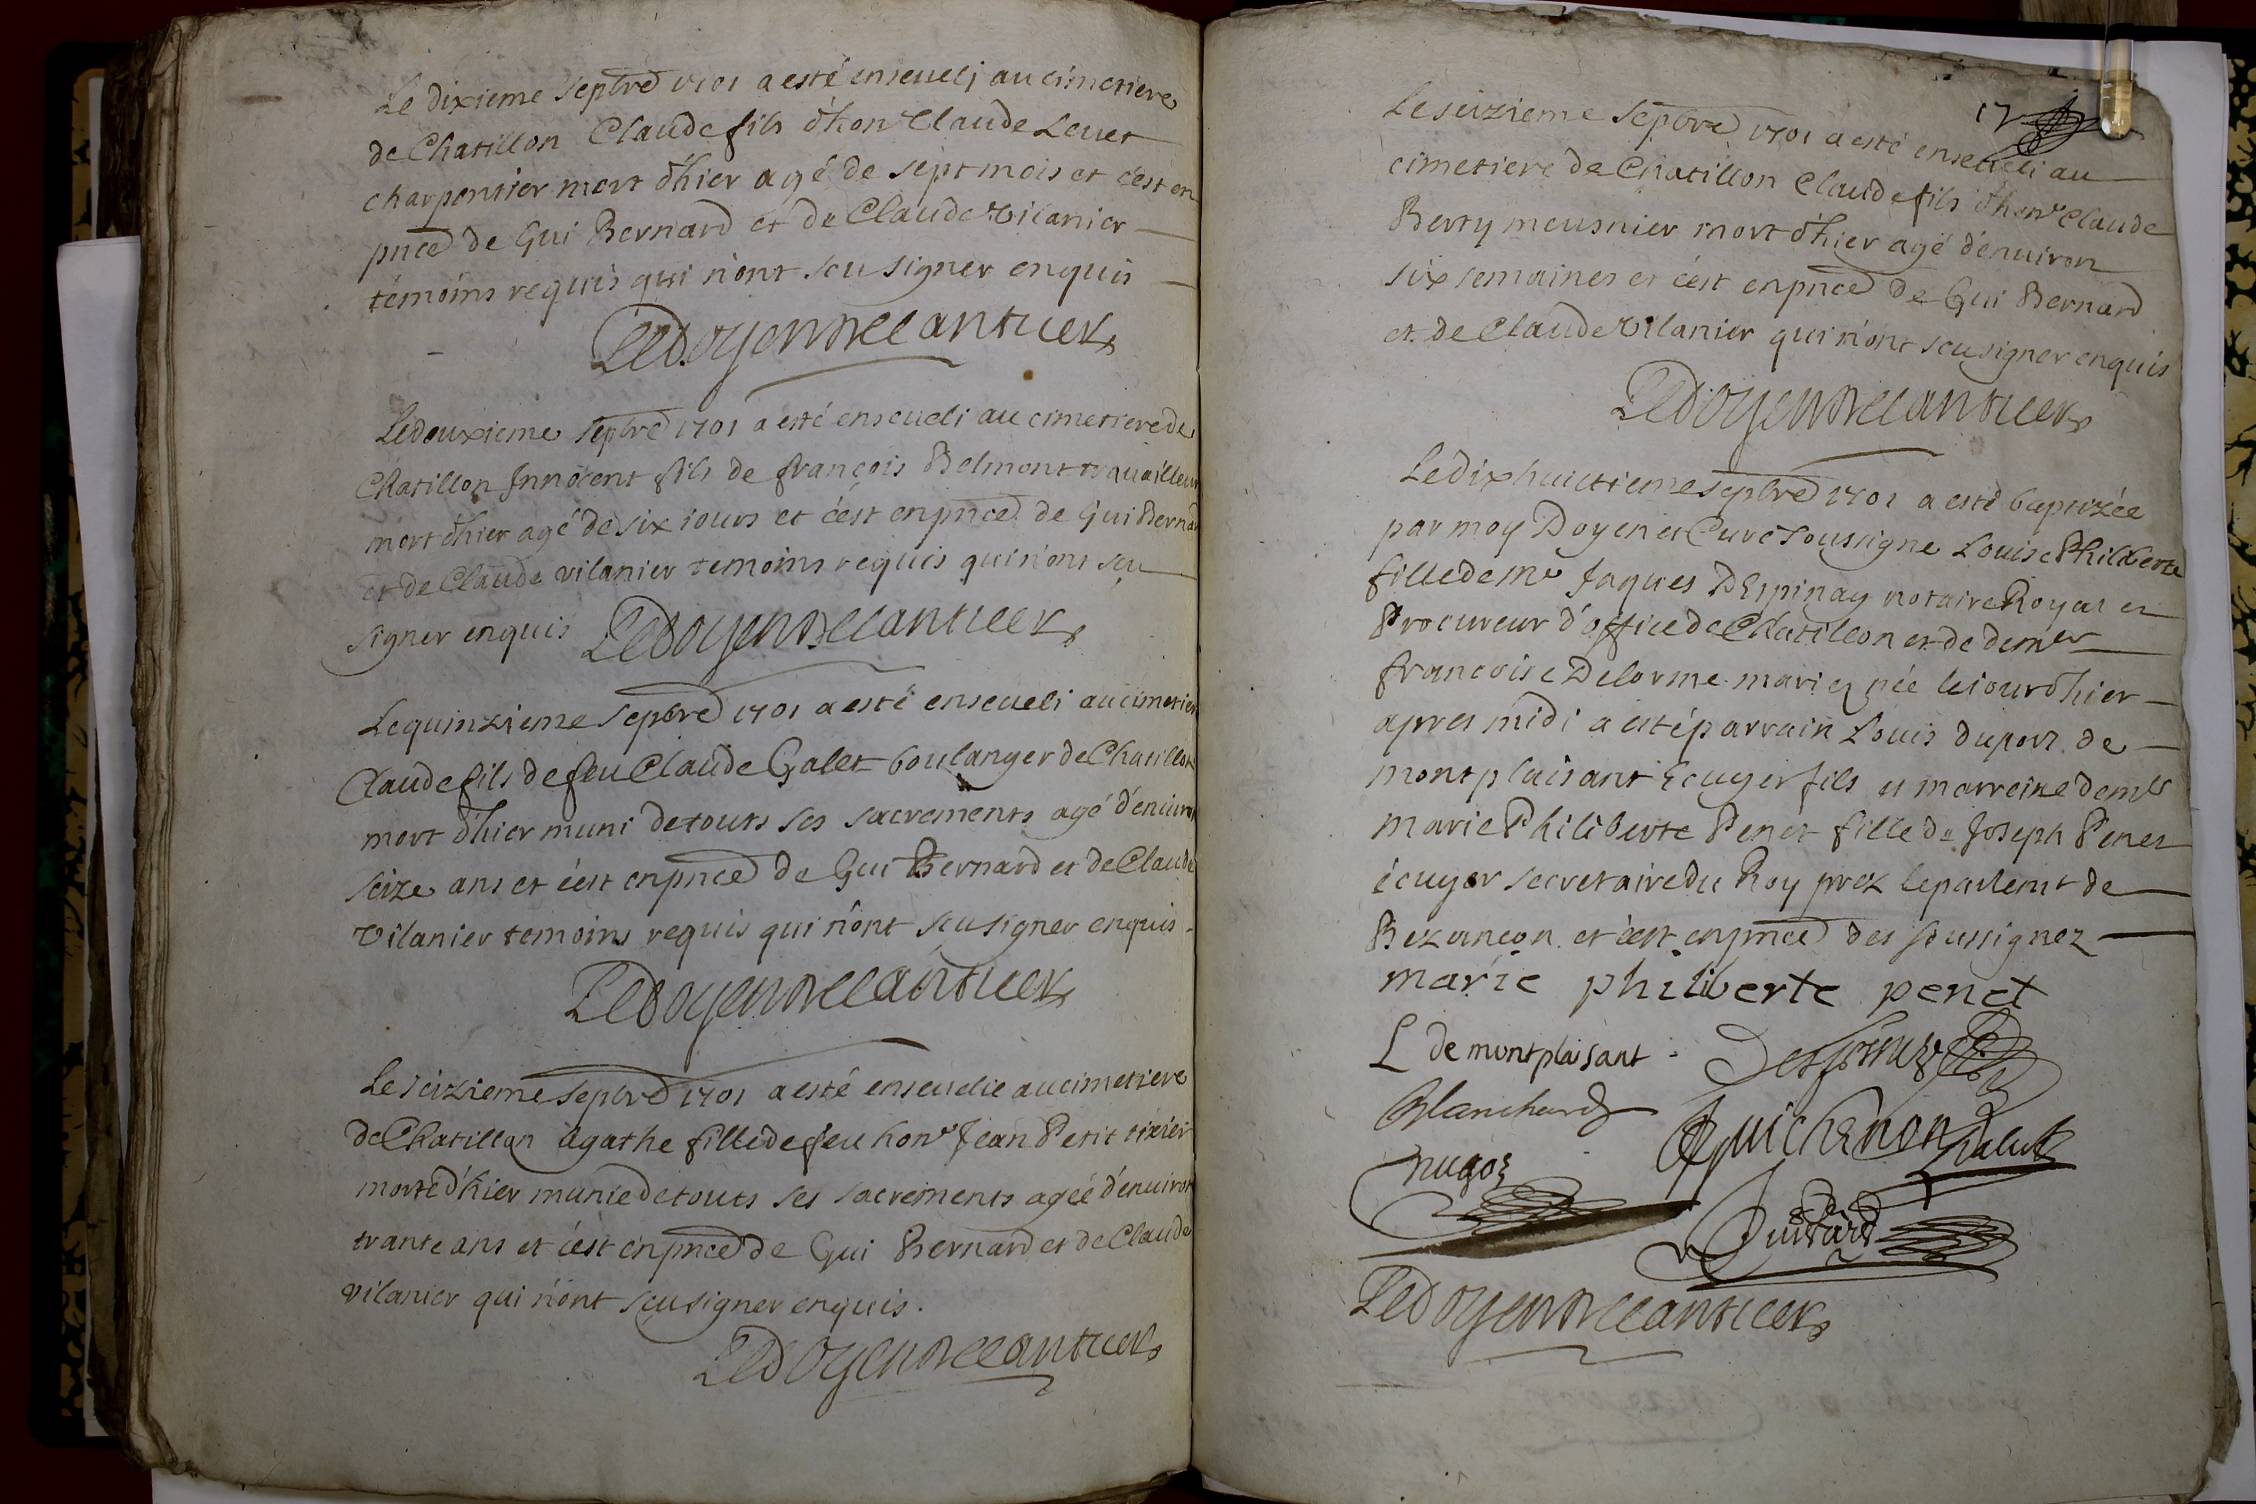 Le dixieme sepbre 1701 a esté enseveli au cimetiere
de Chatillon Claude fils d'hone Claude Levet
charpentier mort d'hier agé de sept mois et c'est en
pnce de Gui Bernard et de Claude Vilanier
témoins requis qui n'ont seu signer enquis
Le Doyen Decantuer
Le douxieme sepbre 1701 a esté enseveli au cimetiere de
Chatillon Innocent fils de françois Belmont travailleur
mort d'hier agé de six iours et c'est en pnce de Gui Bernard
et de Claude vilanier temoins requis qui n'ont seu
signer enquis Le Doyen Decantuer
Le quinzieme sepbre 1701 a esté enseveli au cimetiere
Claude fils de feu Claude Galet boulanger de Chatillon
mort d'hier muni de touts ses sacrements agé d'environ
seize ans et c'est en pnce de Gui Bernard et de Claude
Vilanier temoins requis qui n'ont seu signer enquis
Le Doyen Decantuer
Le seizieme sepbre 1701 a esté ensevelie au cimetiere
de Chatillon Agathe fille de feu hone Jean Petit tixier
morte d'hier munie de touts ses sacrements agée d'environ
trante ans et c'est en pnce de Gui Bernard et de Claude
vilanier qui n'ont seu signer enquis.
Le Doyen Decantuer
17
Le seizieme sepbre 1701 a esté enseveli au
cimetiere de Chatillon Claude fils d'hone Claude
Berry meusnier mort d'hier agé d'environ
six semaines et c'est en pnce de Gui Bernard
et de Claude Vilanier qui n'ont seu signer enquis
Le Doyen Decantuer
Le dix huictieme sepbre 1701 a esté baptizée
par moy Doyen et Curé soussigne Louise Philiberte
fille de Me Jaques D'Espinay notaire Royal et
Procureur d'office de Chatillon et de demlle
francoise Delorme mariez née le iour d'hier
apres midi a esté parrain Louis duport de
montplaisant Ecuyer fils et marreine demlle
marie Philiberte Penet fille de Joseph Penet
écuyer secretaire du Roy prez le parlemt de
Bezançon et c'est en pnce des soussignez
marie philiberte penet
L de montplaisant
Blanchard
Guichenon
nugoz
Guitard
Le Doyen Decantuer